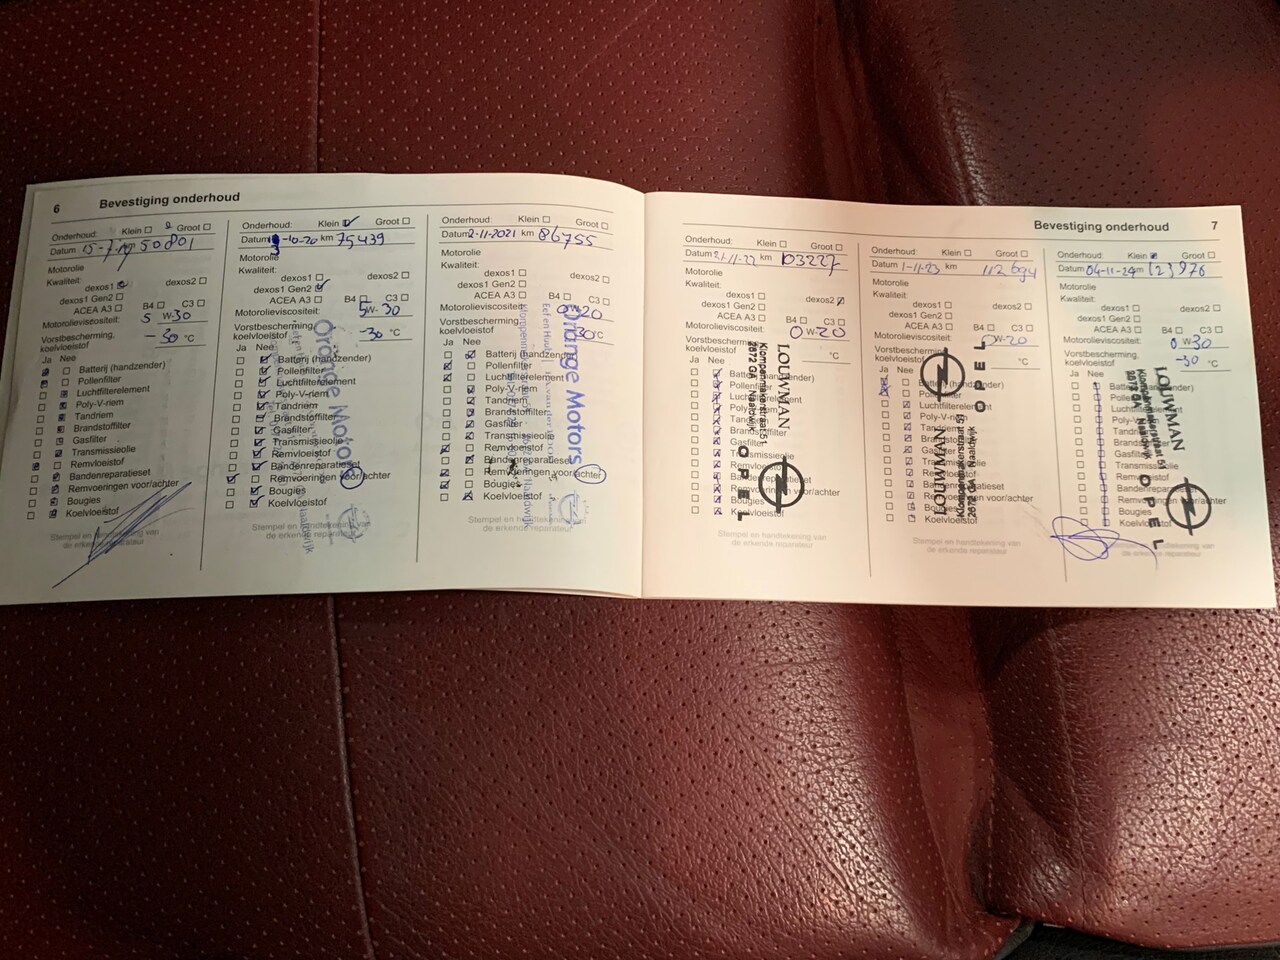 6 Bevestiging onderhoud
Onderhoud: Klein Groot
Datum 15-7-19 50801
Motorolie
Kwaliteit:
dexos1 dexos2
dexos1 Gen2
ACEA A3 B4 C3
Motorolieviscositeit: 5 W-30
Vorstbescherming koelvloeistof -30 °C
Ja Nee
Batterij (handzender)
Pollenfilter
Luchtfilterelement
Poly-V-riem
Tandriem
Brandstoffilter
Gasfilter
Transmissieolie
Remvloeistof
Bandenreparatieset
Remvoeringen voor/achter
Bougies
Koelvloeistof
Stempel en handtekening van
de erkende reparateur
Onderhoud: Klein Groot
Datum -10-20 km 75439
Motorolie
Kwaliteit:
dexos1 dexos2
dexos1 Gen2
ACEA A3 B4 C3
Motorolieviscositeit: 5W-30
Vorstbescherming koelvloeistof -30 °C
Ja Nee
Batterij (handzender)
Pollenfilter
Luchtfilterelement
Poly-V-riem
Tandriem
Brandstoffilter
Gasfilter
Transmissieolie
Remvloeistof
Bandenreparatieset
Remvoeringen voor/achter
Bougies
Koelvloeistof
Stempel en handtekening van
de erkende reparateur
Orange Motors
Onderhoud: Klein Groot
Datum 2-11-2021 km 86755
Motorolie
Kwaliteit:
dexos1 dexos2
dexos1 Gen2
ACEA A3 B4 C3
Motorolieviscositeit: 0W-20
Vorstbescherming koelvloeistof -30°C
Ja Nee
Batterij (handzender)
Pollenfilter
Luchtfilterelement
Poly-V-riem
Tandriem
Brandstoffilter
Gasfilter
Transmissieolie
Remvloeistof
Bandenreparatieset
Remvoeringen voor/achter
Bougies
Koelvloeistof
Stempel en handtekening van
de erkende reparateur
Orange Motors
Bevestiging onderhoud 7
Onderhoud: Klein Groot
Datum 21-11-22 km 103227
Motorolie
Kwaliteit:
dexos1 dexos2
dexos1 Gen2
ACEA A3 B4 C3
Motorolieviscositeit: 0W-20
koelvloeistof °C
Ja Nee
Batterij (handzender)
Luchtfilterelement
Gasfilter
Transmissieolie
Remvloeistof
Bandenreparatieset
Remvoeringen voor/achter
Bougies
Koelvloeistof
Stempel en handtekening van
de erkende reparateur
LOUWMAN
Klompenmakerstraat 51
2672 GA Naaldwijk
OPEL
Onderhoud: Klein Groot
Datum 1-11-23 km 112694
Motorolie
Kwaliteit:
dexos1 dexos2
dexos1 Gen2
ACEA A3 B4 C3
Motorolieviscositeit: 0W-20
koelvloeistof °C
Ja Nee
Batterij (handzender)
Luchtfilterelement
Poly-V-riem
Tandriem
Brandstoffilter
Gasfilter
Transmissieolie
Remvloeistof
Bandenreparatieset
Remvoeringen voor/achter
Bougies
Koelvloeistof
Stempel en handtekening van
de erkende reparateur
LOUWMAN
Klompenmakerstraat 51
2672 GA Naaldwijk
OPEL
Onderhoud: Klein Groot
Datum 04-11-24 km 123976
Motorolie
Kwaliteit:
dexos1 dexos2
dexos1 Gen2
ACEA A3 B4 C3
Motorolieviscositeit: 0 W30
Vorstbescherming koelvloeistof -30 °C
Ja Nee
Batterij (handzender)
Luchtfilterelement
Poly-V-riem
Tandriem
Brandstoffilter
Gasfilter
Transmissieolie
Remvloeistof
Bandenreparatieset
Remvoeringen voor/achter
Bougies
Koelvloeistof
Stempel en handtekening van
de erkende reparateur
LOUWMAN
Klompenmakerstraat 51
2672 GA Naaldwijk
OPEL